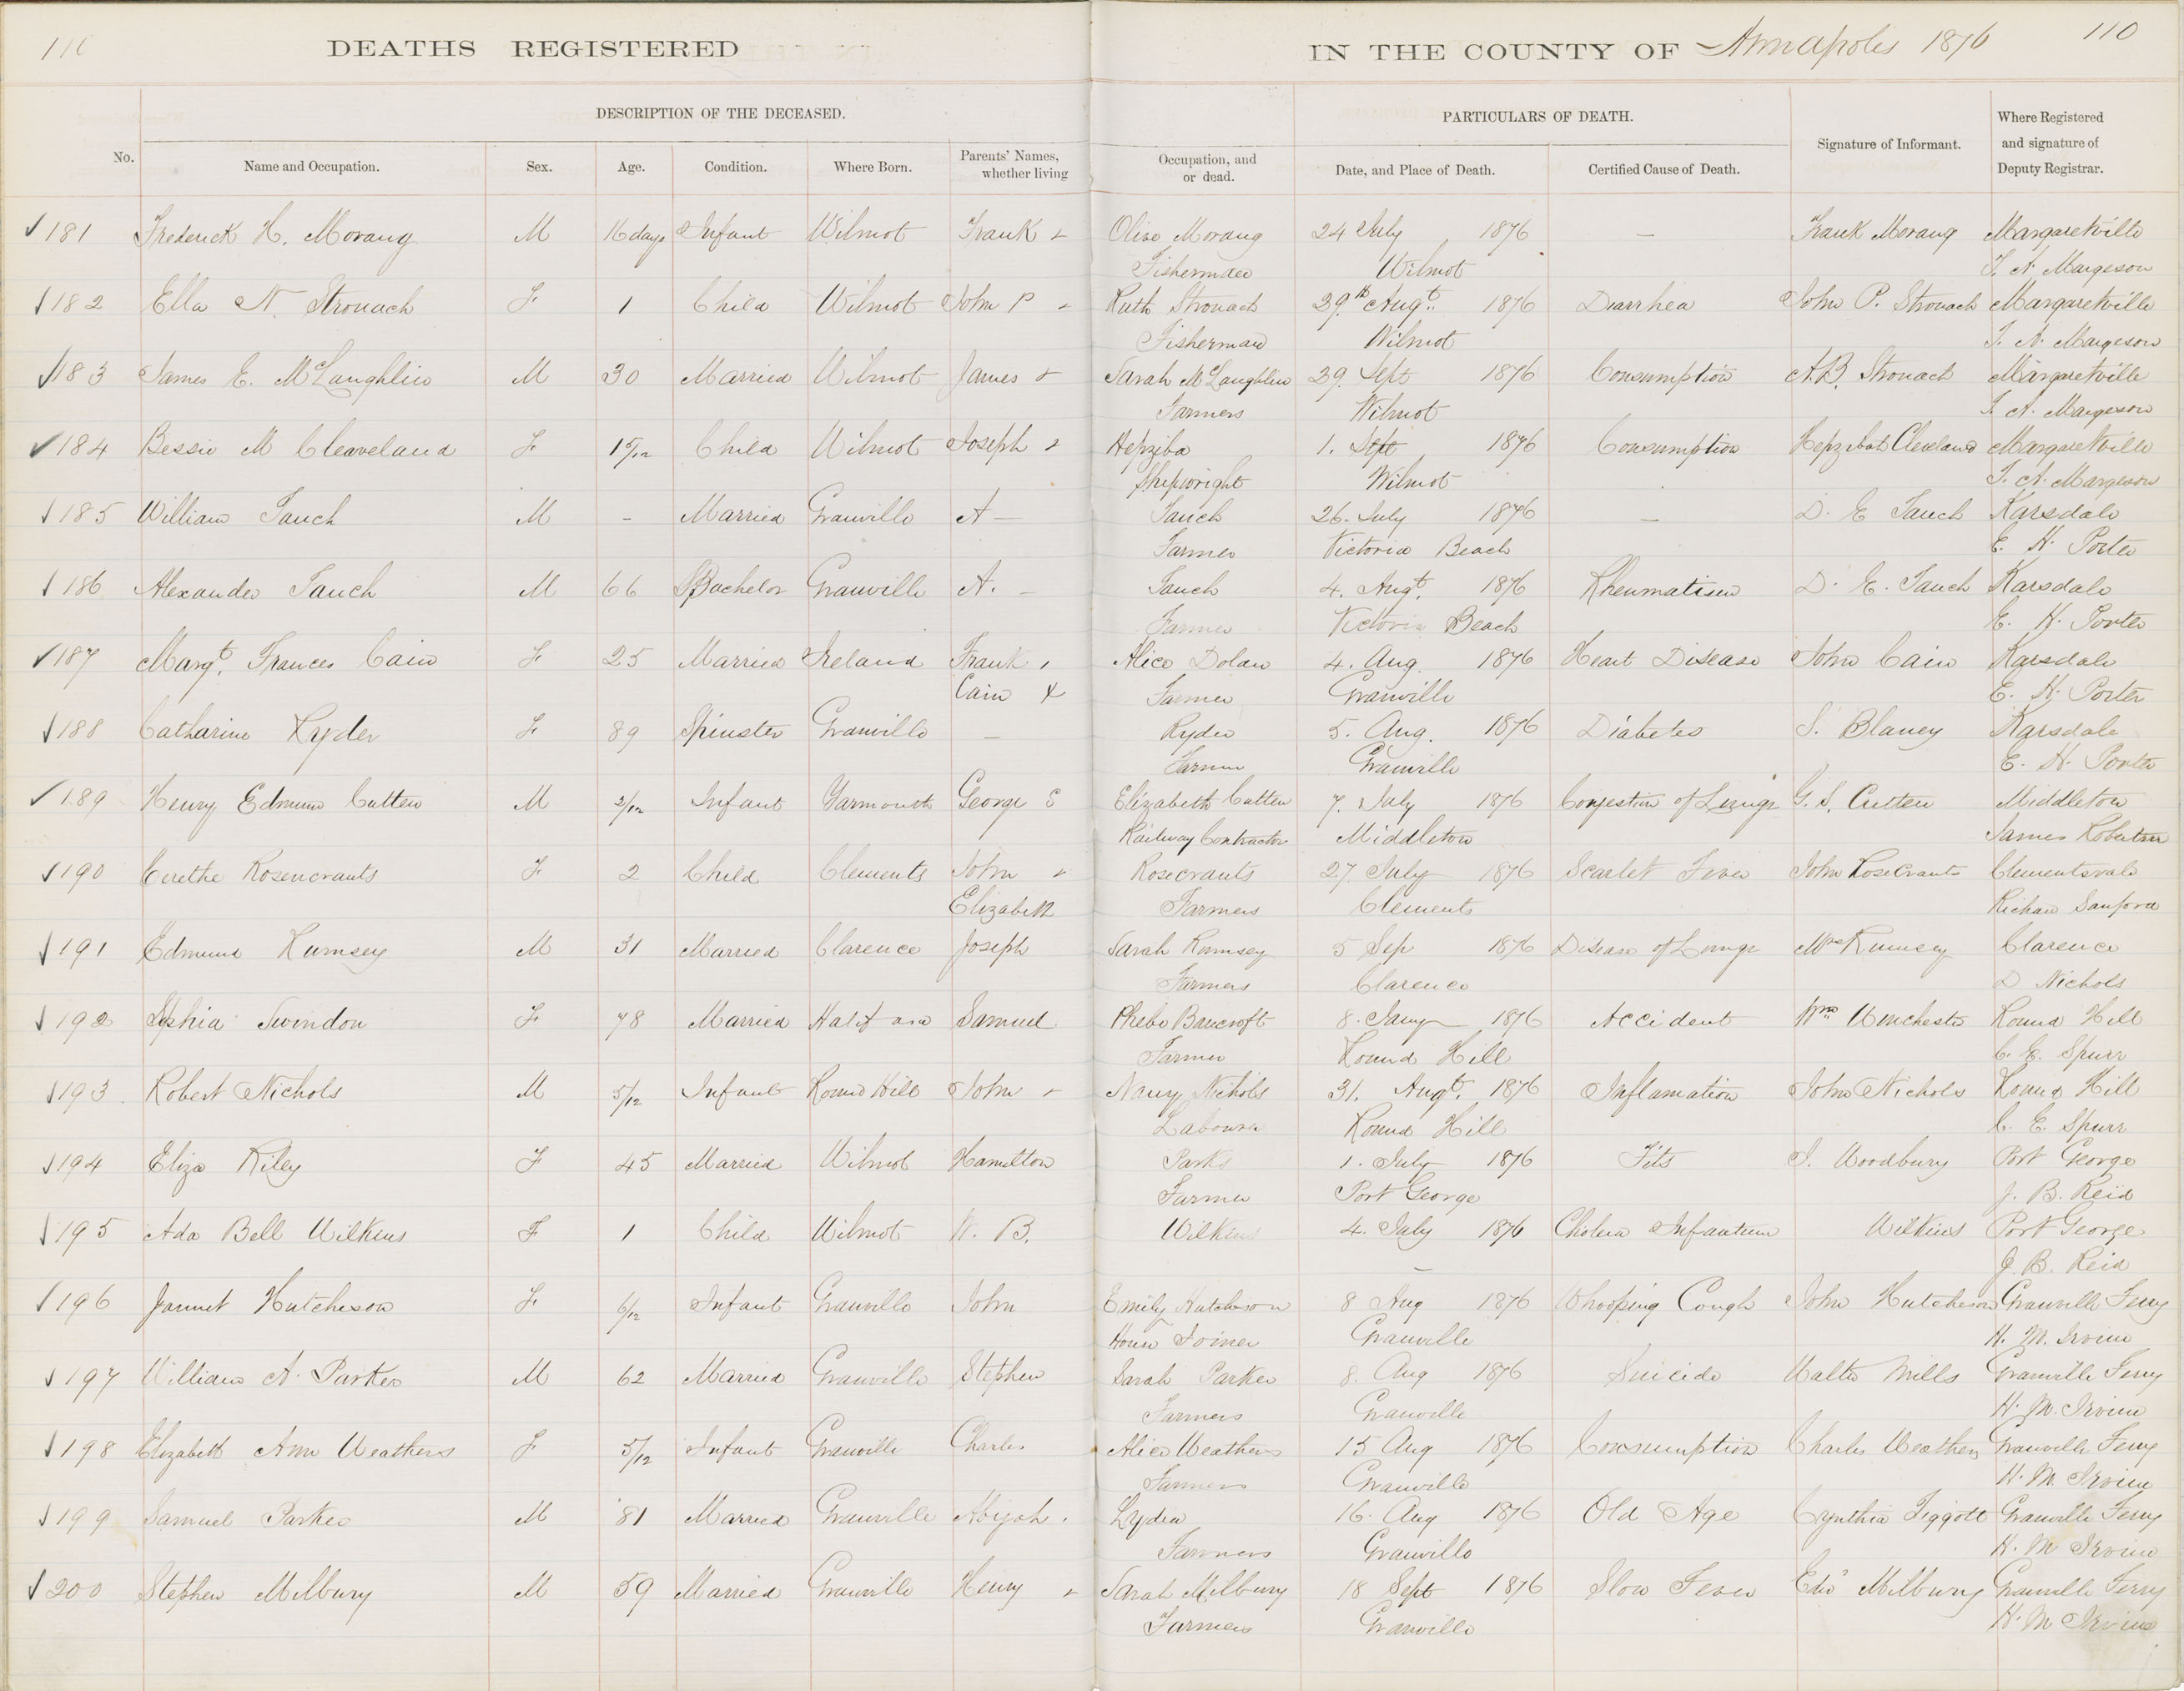 110 DEATHS REGISTERED IN THE COUNTY OF Annapolis 1876 110
DESCRIPTION OF THE DECEASED. PARTICULARS OF DEATH.
No. Name and Occupation. Sex. Age. Condition. Where Born. Parents' Names, whether living Occupation, and or dead. Date, and Place of Death. Certified Cause of Death. Signature of Informant. Where Registered and signature of Deputy Registrar.
181 Frederick H. Morang M 16 days Infant Wilmot Frank + Olive Morang 24 July 1876 — Frank Morang Margaretville
Fisherman Wilmot T. N. Margeson
182 Ella N. Stronach F 1 Child Wilmot John P + Ruth Stronach 29th Augt. 1876 Diarrhea John P. Stronach Margaretville
Fisherman Wilmot T. N. Margeson
183 James E. McLaughlin M 30 Married Wilmot James + Sarah McLaughlin 29. Sept 1876 Consumption A.B. Stronach Margaretville
Farmers Wilmot T. N. Margeson
184 Bessie M Cleaveland F 1 5/12 Child Wilmot Joseph + Hepziba 1. Sept 1876 Consumption Hepzibah Cleveland Margaretville
Shipwright Wilmot T. N. Margeson
185 William Tauch M - Married Granville A — Tauch 26. July 1876 — D. E Tauch Karsdale
Farmer Victoria Beach E. H. Porter
186 Alexander Tauch M 66 Bachelor Granville A. — Tauch 4. Augt. 1876 Rheumatism D. E. Tauch Karsdale
Farmer Victoria Beach E. H. Porter
187 Margt. Frances Cain F 25 Married Ireland Frank, Alice Dolan 4. Aug. 1876 Heart Disease John Cain Karsdale
Cain + Farmer Granville E. H. Porter
188 Catharine Ryder F 89 Spinster Granville — Ryder 5. Aug. 1876 Diabetes S. Blaney Karsdale
Farmer Granville E. H. Porter
189 Henry Edmund Cutten M 2/12 Infant Yarmouth George S Elizabeth Cutten 7. July 1876 Congestion of Lungs G. S. Cutten Middleton
Railway Contractor Middleton James Robertson
190 Rosencrants F 2 Child Clements John + Rosecrants 27. July 1876 Scarlet Fever John Rosecrants Clementsvale
Elizabeth Farmers Clements Richard Sanford
191 Edmund Rumsey M 31 Married Clarence Joseph Sarah Rumsey 5 Sep 1876 Disease of Lungs Mrs Rumsey Clarence
Farmers Clarence D Nichols
192 Sophia Swindon F 78 Married Samuel Phebe Bancroft 8. Jany 1876 Accident Wm Winchester Round Hill
Farmer Round Hill C. E. Spurr
193 Robert Nichols M 5/12 Infant Round Hill John + Nancy Nichols 31. Augt. 1876 Inflamation John Nichols Round Hill
Labourer Round Hill C. E. Spurr
194 Eliza Riley F 45 Married Wilmot Hamilton Parks 1. July 1876 Fits S. Woodbury Port George
Farmer Port George J. B. Reid
195 Ada Bell Wilkins F 1 Child Wilmot W. B. Wilkins 4. July 1876 Cholera Infantum Wilkins Port George
— J. B. Reid
196 Jannet Hutcheson F 6/12 Infant Granville John Emily Hutcheson 8 Aug 1876 Whooping Cough John Hutcheson Granville Ferry
House Joiner Granville H. M. Irvine
197 William A. Parker M 62 Married Granville Stephen Sarah Parker 8. Aug 1876 Suicide Walter Mills Granville Ferry
Farmers Granville H. M. Irvine
198 Elizabeth Ann Weathers F 5/12 Infant Granville Charles Alice Weathers 15 Aug 1876 Consumption Charles Weathers Granville Ferry
Farmers Granville H. M. Irvine
199 Samuel Parker M 81 Married Granville Abijah. Lydia 16. Aug 1876 Old Age Cynthia Piggott Granville Ferry
Farmers Granville H. M Irvine
200 Stephen Milbury M 59 Married Granville Henry + Sarah Milbury 18 Sept 1876 Slow Fever Edw Milbury Granville Ferry
Farmers Granville H. M Irvine